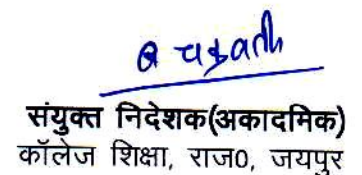 संयुक्त निदेशक(अकादमिक)
कॉलेज शिक्षा, राज0, जयपुर